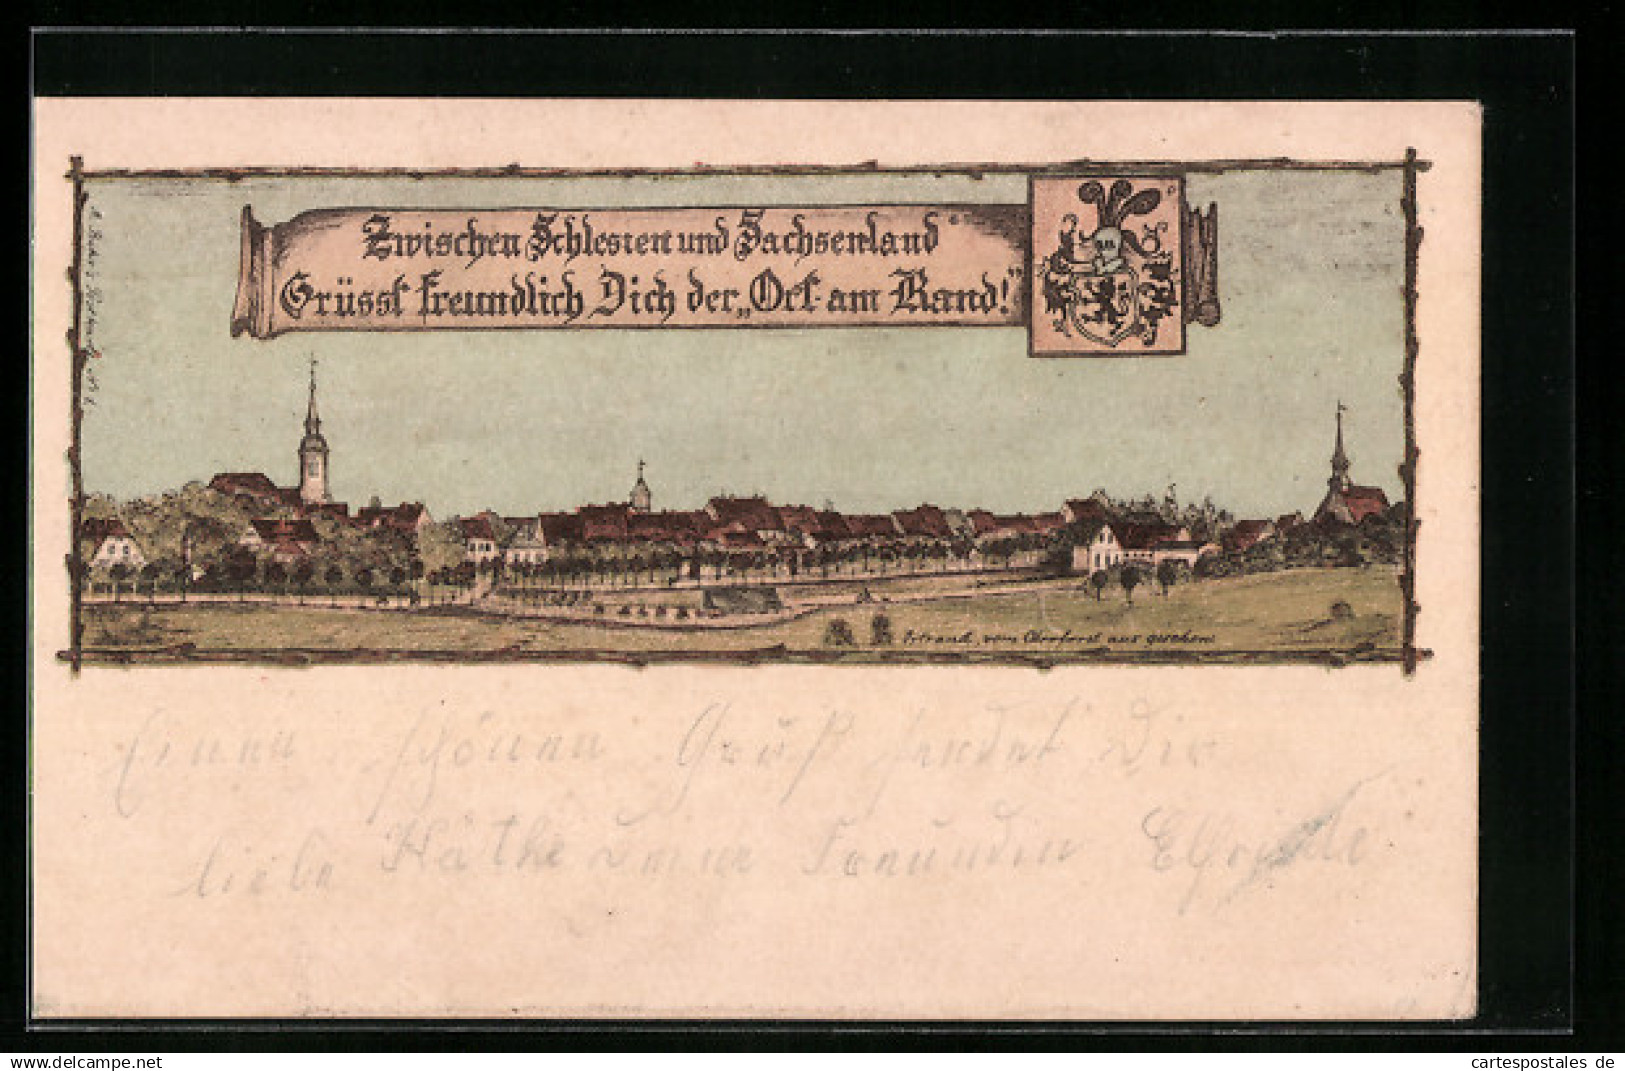 Zwischen Schlesien und Sachsenland
Grüsst freundlich Dich der „Ort am Rand!"
Ortrand, vom aus gesehen
Einen schönen Gruß sendet Dir
liebe Käthe Deine Freundin Elfriede
www.delcampe.net
cartespostales de